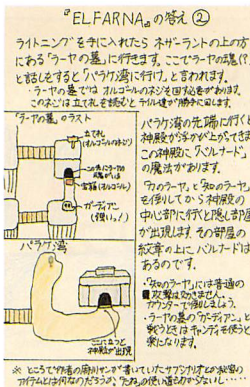 『ELFARNA』の答え②
ライトニングを手に入れたら ネザーランドの上の方
にある「ラーヤの墓」に行きます。ここでラーヤの魂(?)
と話しをすると「パラケ湾に行け」と言われます。
・ラーヤの墓では オルゴールのネジを回す必要があります。
このネジは立て札を読むと ライル達が勝手に回します。
「ラーヤの墓」のラスト
立て札
(オルゴールのネジ)
この先にラーヤの
魂がいる
宝箱(オルゴール)
ガーディアン
(強い!)
パラケ湾
ここに立つと
神殿が出現
パラケ湾の先端に行くと
神殿が浮かび上がってきます
この神殿に「バルナード」
の魔法があります。
「力のラーヤ」と「知のラーヤ」
を倒してから神殿の
中心部に行くと隠し部屋
が出現します その部屋の
紋章の上に、バルナードは
あるのです。
・「知のラーヤ」には普通の
攻撃はききません。
カウンターで倒しましょう。
・ラーヤの墓の「ガーディアン」と
戦うときはキャンディを使うと
楽になります。
※ ところで作者の サンが書いていたサブシナリオとか秘宝の
アイテムとは何なのだろうか。「たね」の使い道さがらない…